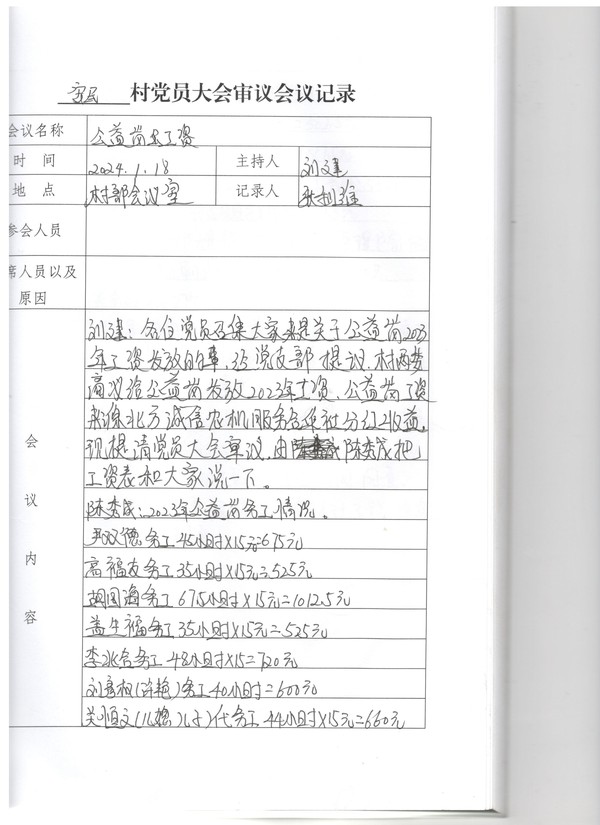 富民 村党员大会审议会议记录
会议名称 公益岗位工资
时间 2024.1.18 主持人 刘建
地点 村部会议室 记录人
参会人员
席人员以及
原因
会议内容
刘建：各位党员召集大家来是关于公益岗2023
年工资发放的事，经党支部提议，村两委
商议给公益岗发放2023年工资，公益岗工资
来源北方诚信农机服务合作社分红收益，
现提请党员大会审议。由陈奎成把
工资表和大家说一下。
陈奎成：2023年公益岗务工情况。
尹双德务工45小时×15元=675元
高福友务工35小时×15元=525元
胡国海务工67.5小时×15元=1012.5元
盖生福务工35小时×15元=525元
李兆合务工48小时×15=720元
刘彦权(许艳)务工40小时=600元
关顺文(儿媳儿子)代务工44小时×15元=660元